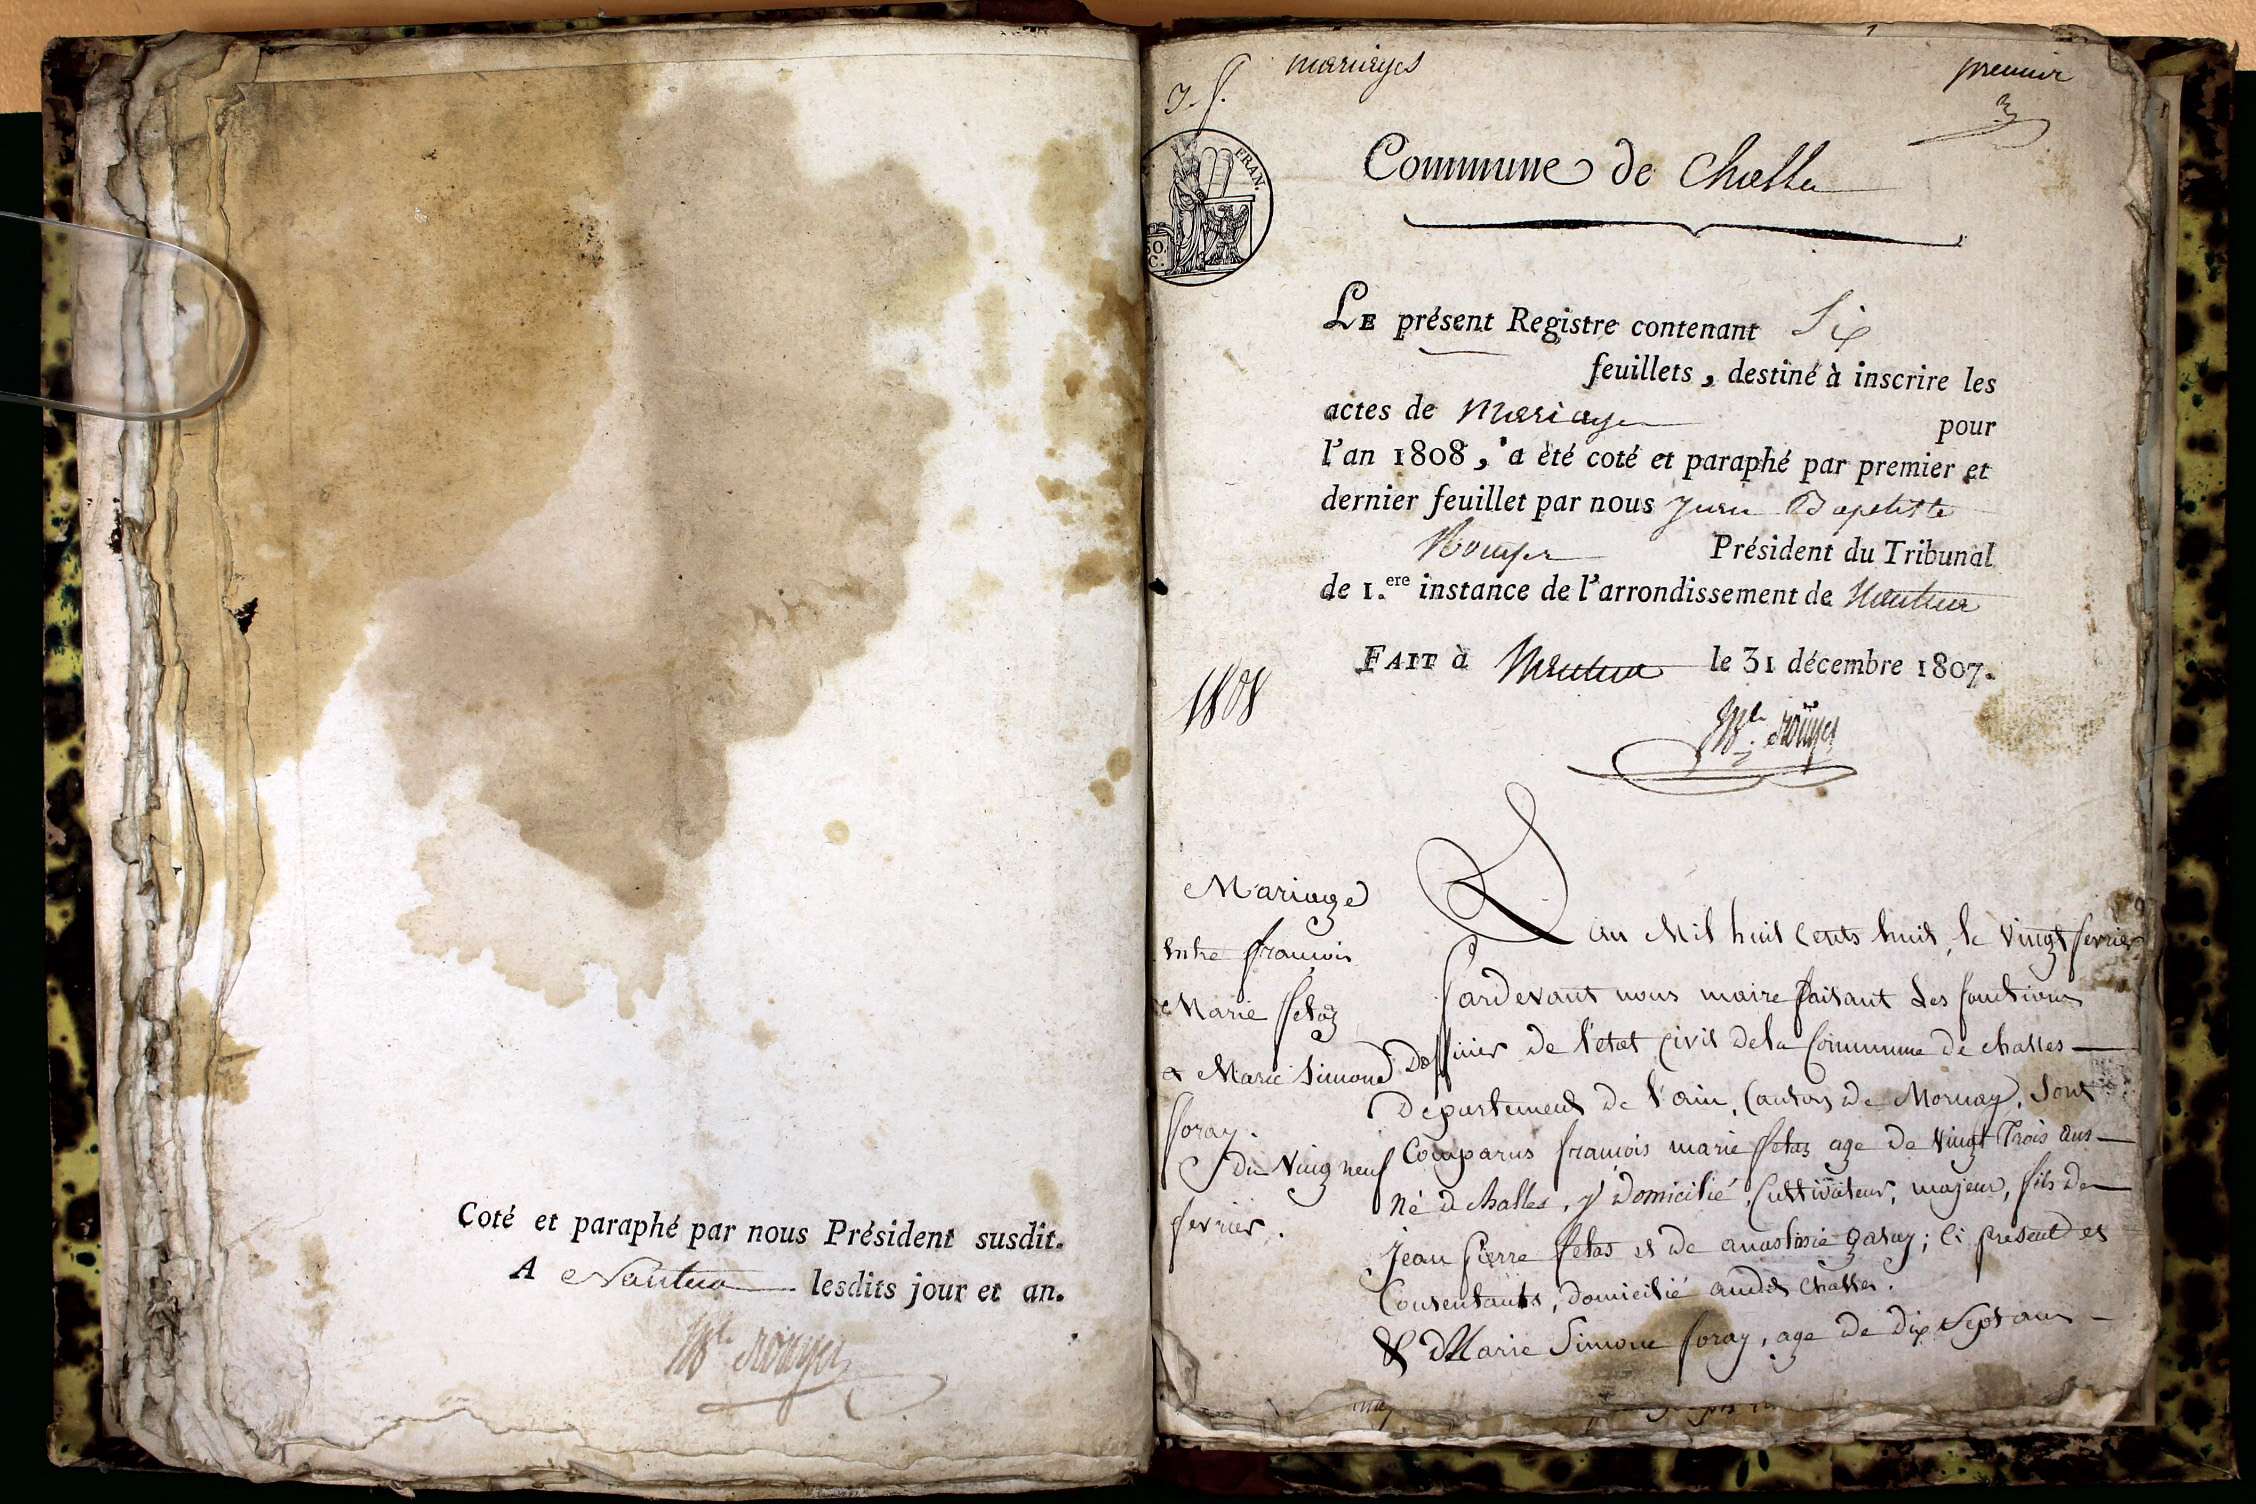 Coté et paraphé par nous Président susdit.
A Nantua lesdits jour et an.
mariages
premier
FRAN.
Commune de Challe
LE présent Registre contenant Six
feuillets, destiné à inscrire les
actes de Mariage pour
l'an 1808, a été coté et paraphé par premier et
dernier feuillet par nous Jean Baptiste
Rouyer Président du Tribunal
de 1.ere instance de l'arrondissement de Nantua
FAIT à Nantua le 31 décembre 1807.
1808
Rouyer
Mariage
Entre francois
Marie fetaz
& Marie Simone
foray.
du Vingt neuf
fevrier.
Lan Mil huit Cents huit, le Vingt fevrier
Pardevant nous maire faisant Les fonctions
Dofficier de l'etat Civil dela Commune de challes
Departement de l'ain, Canton de Mornay, Sont
Comparus francois marie fetaz age de Vingt Trois ans
Né a challes, y Domicilié, Cultivateur, majeur, fils de
jean Pierre fetas et de anastasie ; Ci present et
Consentants, Domicilié audit Challes.
& Marie Simone foray, age de Dix Sept ans